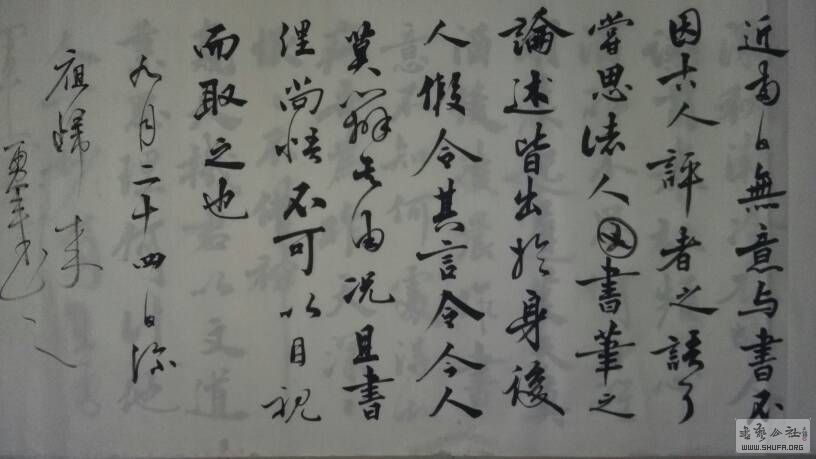 近两日無意与書不
因古人評者之語了
嘗思诸人因書筆之
論述皆出於身後
人假令其言令今人
莫辨其由况且書
理尚悟不可以目視
而取之也
九月二十四日深
夜歸来
書艺公社
WWW.SHUFA.ORG